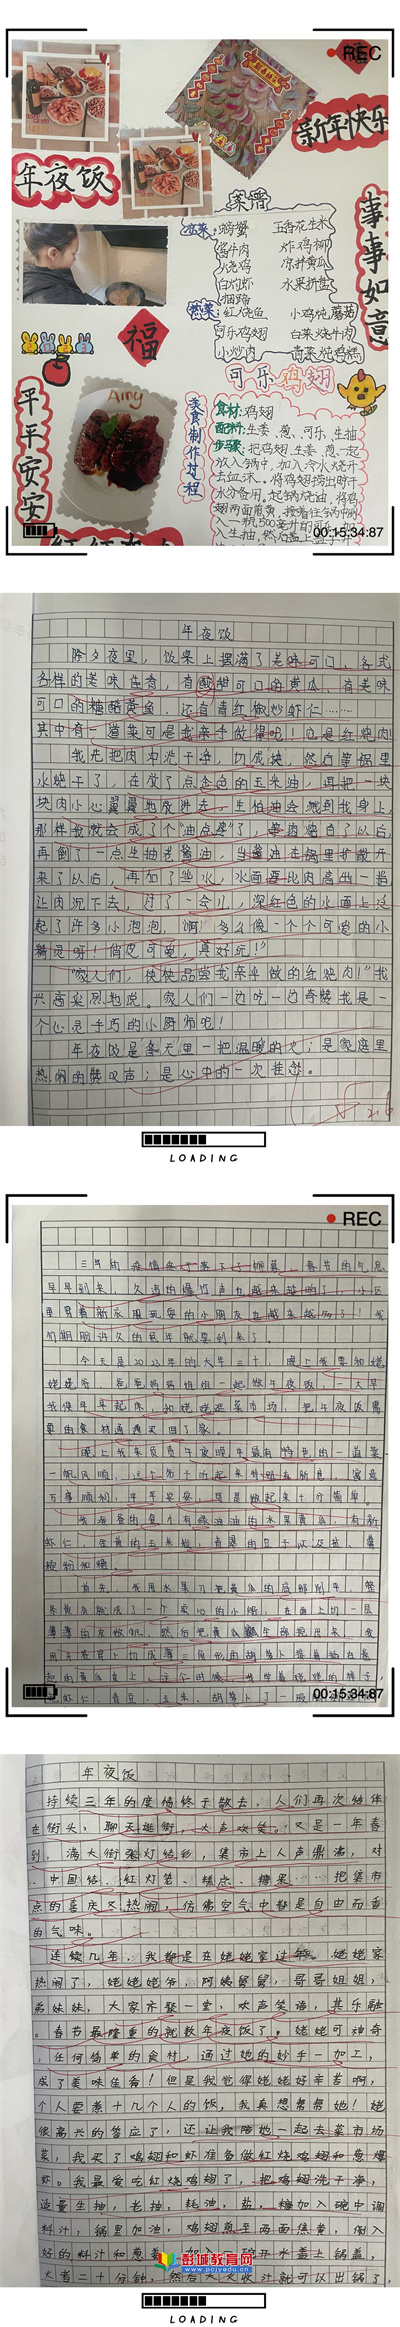 REC
新年快乐
年夜饭
事事如意
菜谱
凉菜:螃蟹 五香花生米
酱牛肉 炸鸡柳
烧鸡 凉拌黄瓜
白灼虾 水果拼盘
热菜:红烧鱼 小鸡炖蘑菇
可乐鸡翅 白菜烧牛肉
小炒肉
福
可乐鸡翅
平平安安
Amy
美食制作过程
食材:鸡翅
配料:生姜、葱、可乐、生抽
步骤:把鸡翅生姜、葱一起
放入锅中,加入冷水烧开
出血沫。将鸡翅捞出晾干
水分备用。起锅烧油,将鸡
翅两面煎黄,接着往锅中倒
入一瓶500毫升的可乐,加
00:15:34:87
年夜饭
除夕夜里,饭桌上摆满了美味可口、各式
各样的美味佳肴,有酸甜可口的黄瓜、有美味
可口的糖醋黄鱼、还有青红椒炒虾仁……
其中有一道菜可是我亲手做得呢!它是红烧肉!
我先把肉冲洗干净,切成块,然后等锅里
水烧干了,在放了点金色的玉米油,再把一块
块肉小心翼翼地放进去,生怕油会溅到我身上,
那样我就会成了个“油点星”了,等肉熘白了以后,
再倒了一点生抽老酱油,当酱油在锅里扩散开
来了以后,再加了些水,水面要比肉高出一指
让肉沉下去,过了一会儿,深红色的水面上泛
起了许多小泡泡,“啊!多么像一个个可爱的小
精灵呀!俏皮可爱,真好玩!”
“家人们,快快品尝我亲手做的红烧肉!”我
兴高采烈地说。家人们一边吃一边夸赞我是一
个心灵手巧的小厨师呢!
年夜饭是冬天里一把温暖的火;是家庭里
热闹的赞叹声;是心中的一次挂念。
LOADING
REC
三年的疫情终于落下了帷幕,春节的气息
早早到来,久违的爆竹声也越来越响了,小区
里穿着新衣服玩耍的小朋友也越来越多了!我
们期盼许久的虎年就要到来了。
今天是2023年的大年三十,晚上我要和姥
姥姥爷、爸爸妈妈姐姐一起做年夜饭,一大早
我便早早起床,和姥姥逛菜市场,把年夜饭需
要的食材通通买回了家。
晚上我来负责年夜晚中最有特色的一道菜
一帆风顺,这个名字听起来特别有新意,寓意
万事顺利、平平安安,可是做起来十分简单。
我准备的食材有绿油油的水果黄瓜,有新
虾仁,金黄的玉米粒,青翠的豆子以及盐、黑
椒粉和糖。
首先,我用水果刀把黄瓜的底部削平,整
00:15:34:87
年夜饭
持续三年的疫情终于散去,人们再次结伴
在街头,聊天逛街,大声欢笑。又是一年春
到,满大街张灯结彩,集市上人声鼎沸,对
、中国结、红灯笼、糕点、糖果……把集市
点的喜庆又热闹,仿佛空气中都是自由而香
的气味。
连续几年,我都是在姥姥家过年。姥姥家
热闹了,姥姥姥爷,阿姨舅舅,哥哥姐姐,
弟妹妹,大家齐聚一堂,欢声笑语,其乐融
。春节最隆重的就数年夜饭了。姥姥可神奇
,任何简单的食材,通过她的妙手一加工,
成了美味佳肴!但是我觉得姥姥好辛苦啊,
个人要煮十几个人的饭,我真想帮帮她!姥
很高兴的答应了,还让我陪她一起去菜市场
菜,我买了鸡翅和虾准备做红烧鸡翅和葱爆
虾。我最爱吃红烧鸡翅了,把鸡翅洗干净,
适量生抽,老抽,蚝油,盐,糖加入碗中调
料汁,锅里加油,鸡翅煎至两面焦黄,倒入
好的料汁和葱姜,加入一碗开水盖上锅盖,
火煮二十分钟,然后大火收汁就可以出锅了,
彭城教育网
www.pcjyedu.cn
LOADING